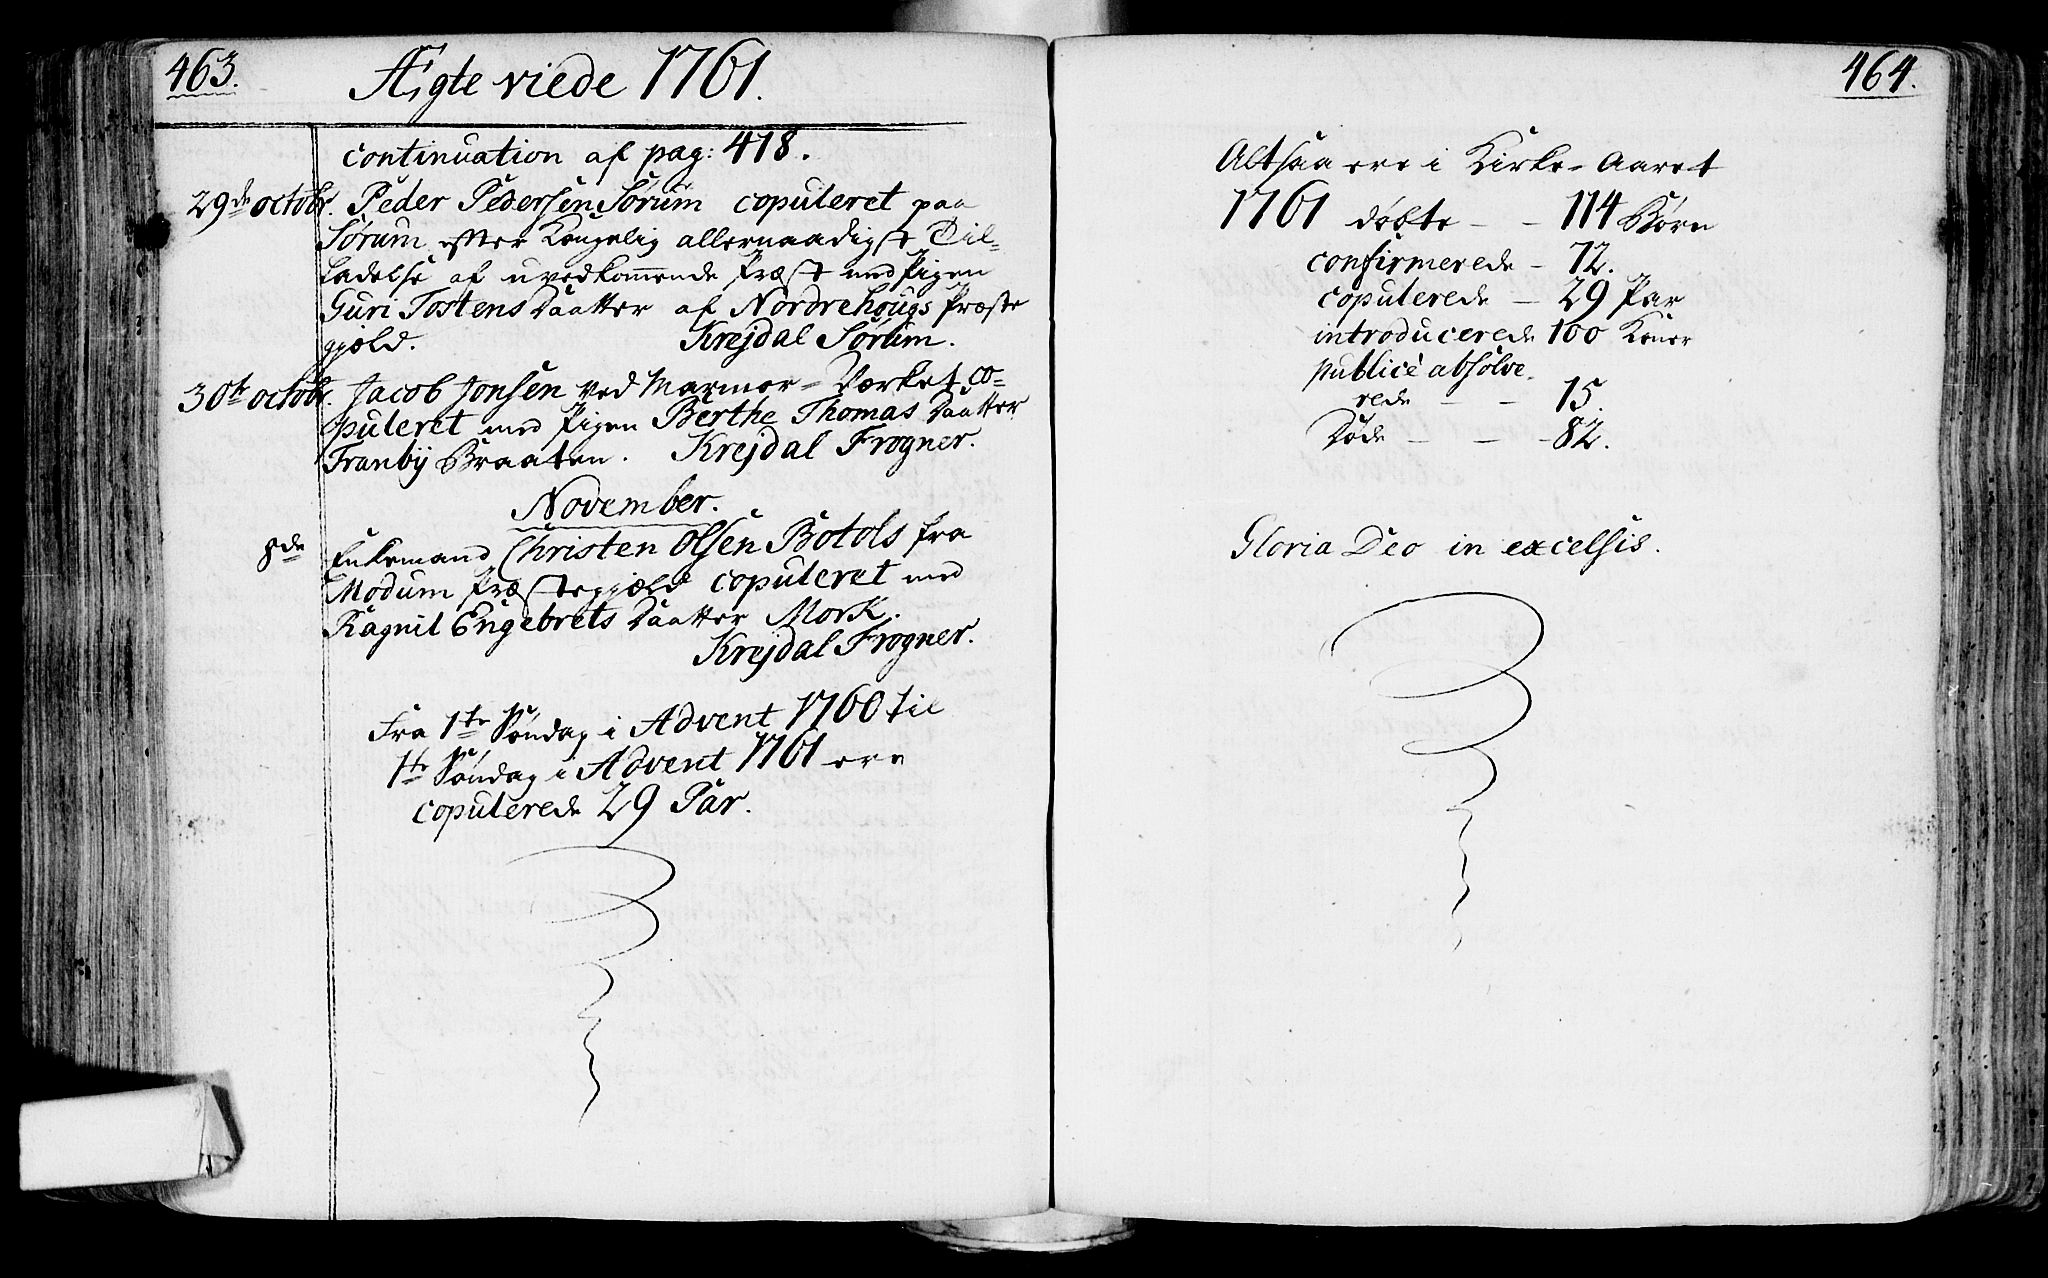 463.
Ægte viede 1761.
continuation af pag: 418.
29de octobr. Peder Pedersen Sørum copuleret paa
Sørum efter Kongelig allernaadigst Til-
ladelse af uvedkom̄ende Præst med Pigen
Guri Tostens Daatter af Nordrehougs Præste
gjæld. Krejdal Sørum.
30te octobr. Jacob Jonsen ved Marmor-Værket co-
puleret med Pigen Berthe Thomas Daatter
Tranbÿ Braaten. Krejdal Frogner.
November.
8de Enkemand Christen Olsen Botols fra
Modum Præstegjæld copuleret med
Ragnil Engebrets Daatter Mork.
Krejdal Frogner.
Fra 1te Søndag i Advent 1760 til
1te Søndag i Advent 1761 ere
copulerede 29 Par.
464.
Altsaa ere i Kirke-Aaret
1761 døbte - - 114 Børn
confirmerede - 72.
copulerede - 29 Par
introducerede 100 Koner
publicè absolve-
rede - - 15.
Døde - - - 82.
Gloria Deo in excelsis.